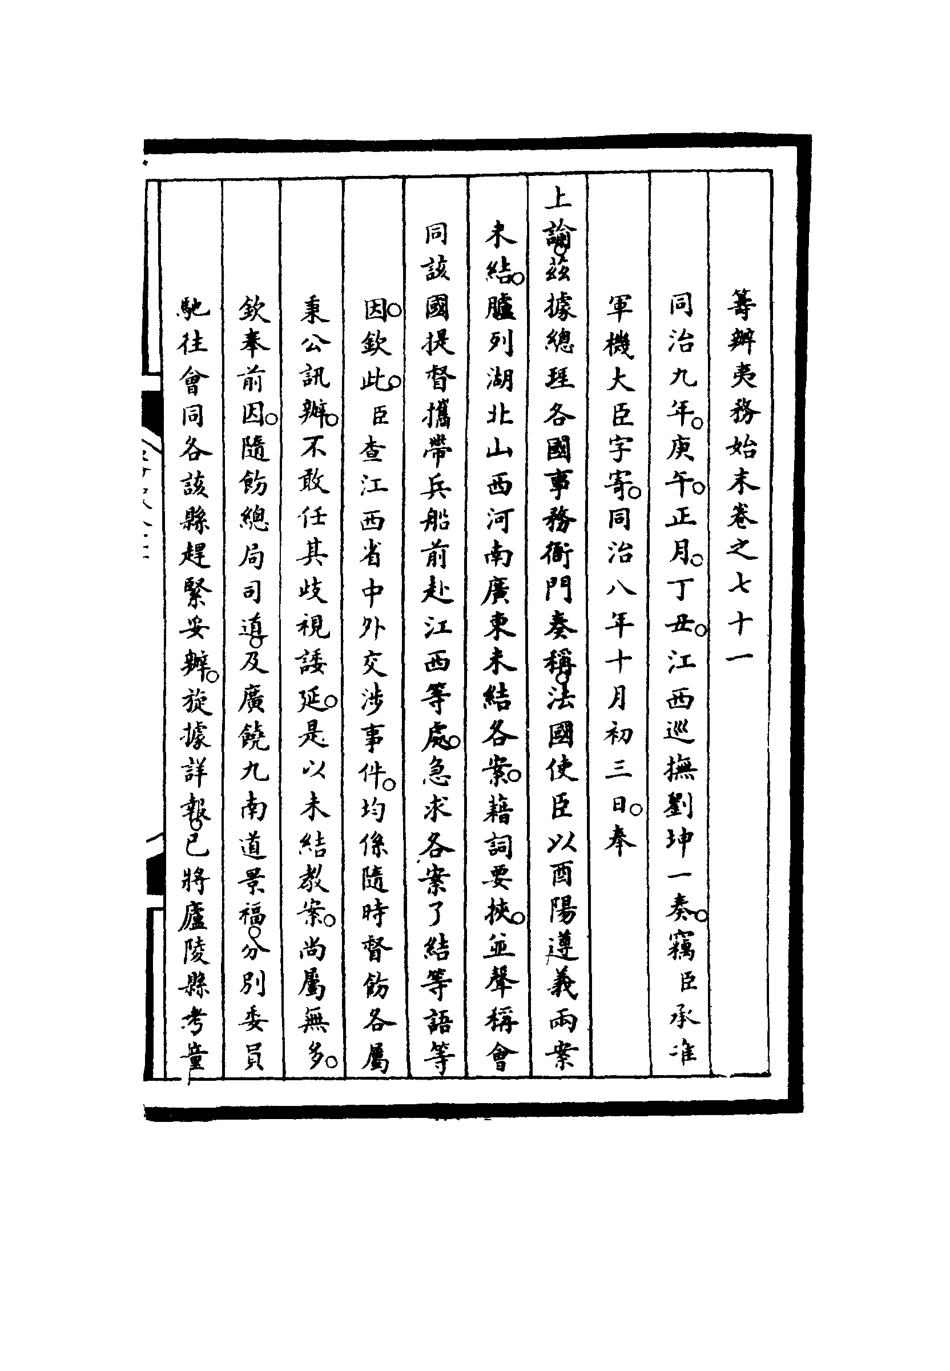 籌辦夷務始末卷之七十一
同治九年。庚午。正月。丁丑。江西巡撫劉坤一奏。竊臣承准
軍機大臣字寄。同治八年十月初三日。奉
上諭。茲據總理各國事務衙門奏稱。法國使臣以酉陽遵義兩案
未結。臚列湖北山西河南廣東未結各案。藉詞要挾。並聲稱會
同該國提督攜帶兵船前赴江西等處。急求各案了結等語等
因。欽此。臣查江西省中外交涉事件。均係隨時督飭各屬
秉公訊辦。不敢任其歧視諉延。是以未結教案。尚屬無多。
欽奉前因。隨飭總局司道。及廣饒九南道景福。分別委員
馳往會同各該縣趕緊妥辦。旋據詳報。已將廬陵縣考童